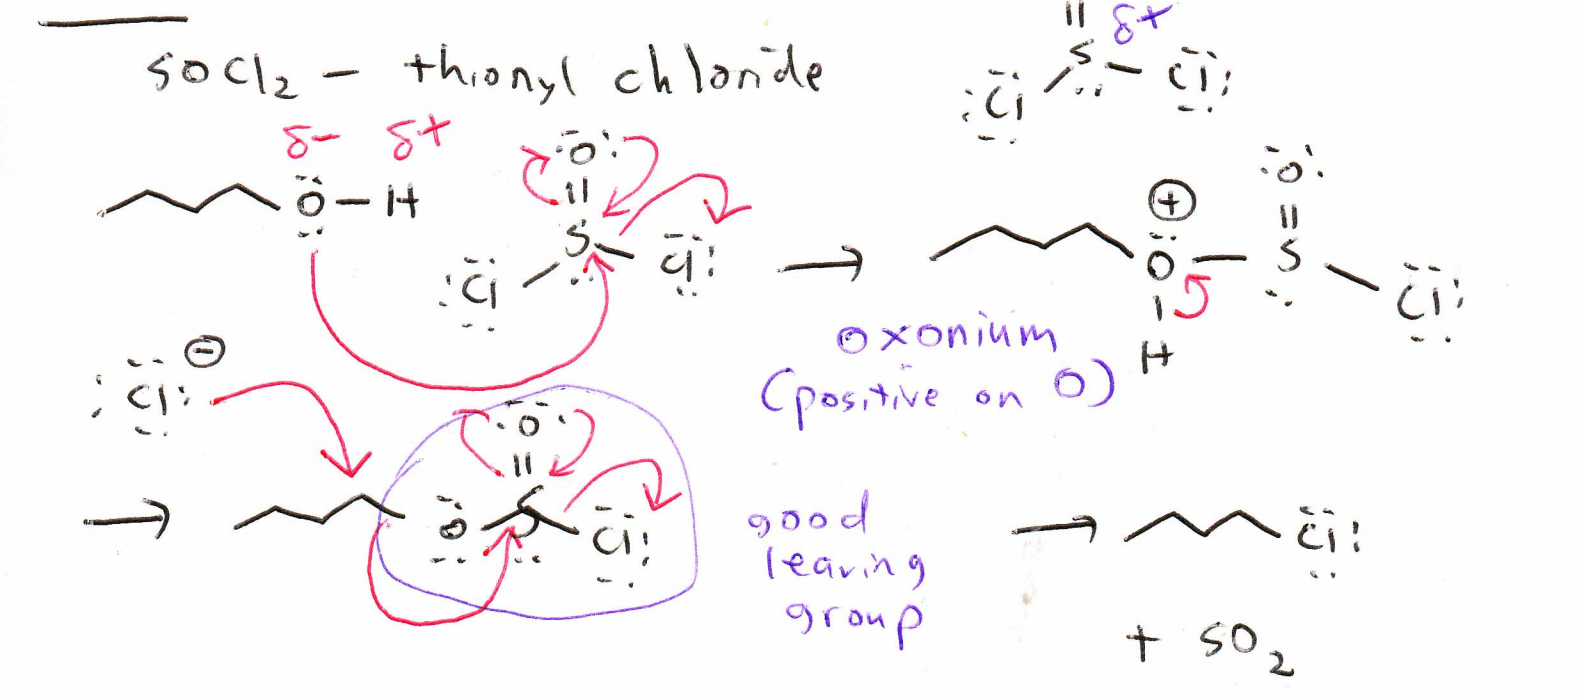 SOCl2 - thionyl chloride
δ+
O
S
Cl
Cl
δ- δ+
O-H
O
S
Cl
Cl
⊕
O
O
S
H
Cl
oxonium
(positive on O)
Cl ⊖
O
O
S
Cl
good
leaving
group
Cl
+ SO2